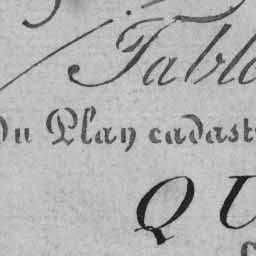 Tabl
du Plan cadast
QU